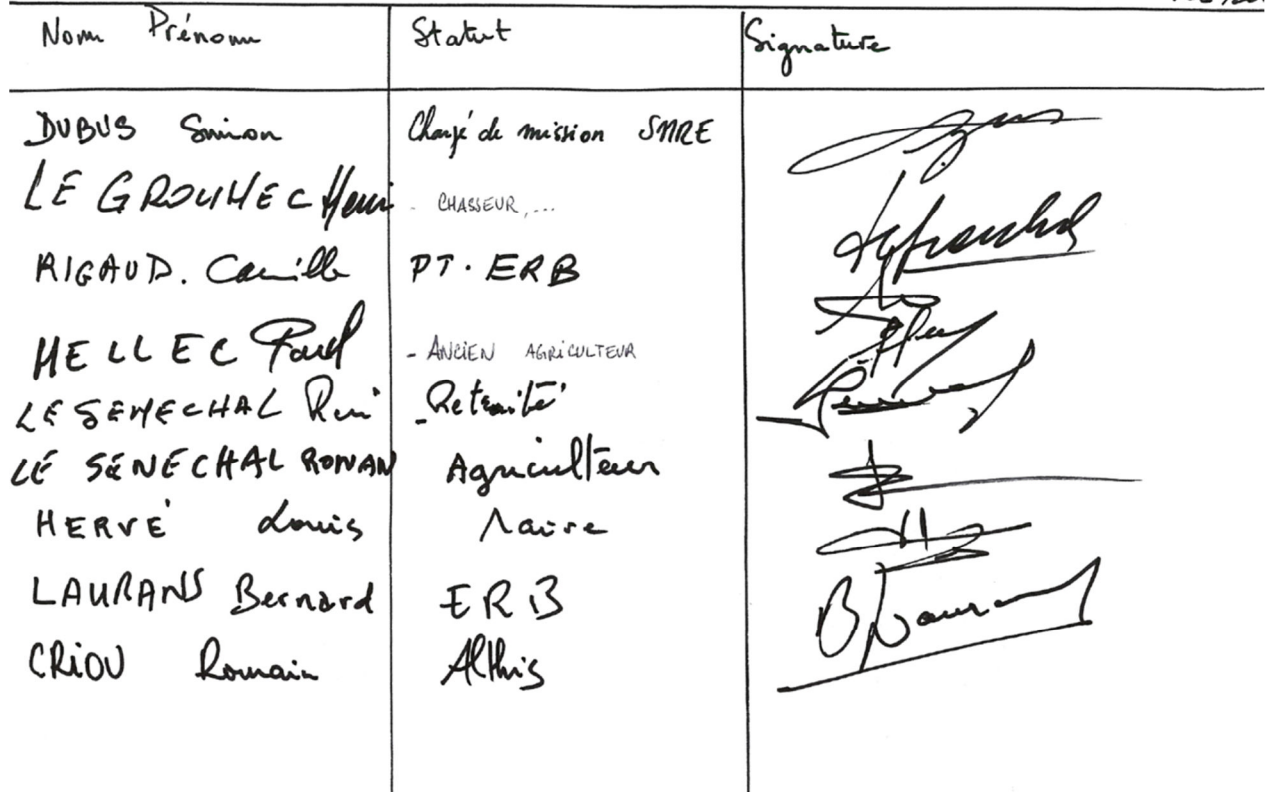 Nom Prénom Statut Signature
DUBUS Simon Chargé de mission SMRE
LE GROUHEC Henri - CHASSEUR,...
RIGAUD. Camille PT. ERB
HELLEC Paul - ANCIEN AGRICULTEUR
LE SENECHAL Rémi - Retraité
LE SÉNÉCHAL RONAN Agriculteur
HERVÉ Louis Maire
LAURANS Bernard ERB
CRIOU Romain Althis